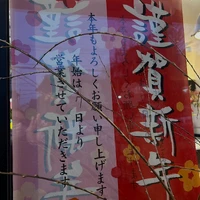 謹賀新年
本年もよろしくお願い申し上げます
年始は 日より
営業させていただきます